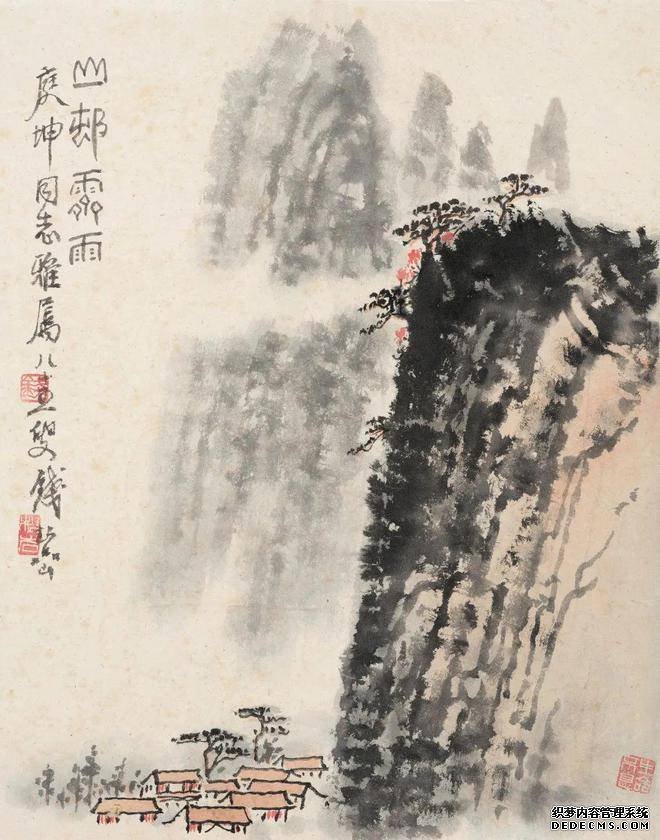 山邨霽雨
庚坤同志雅属八叟錢松喦
织梦内容管理系统
DEDECMS.COM